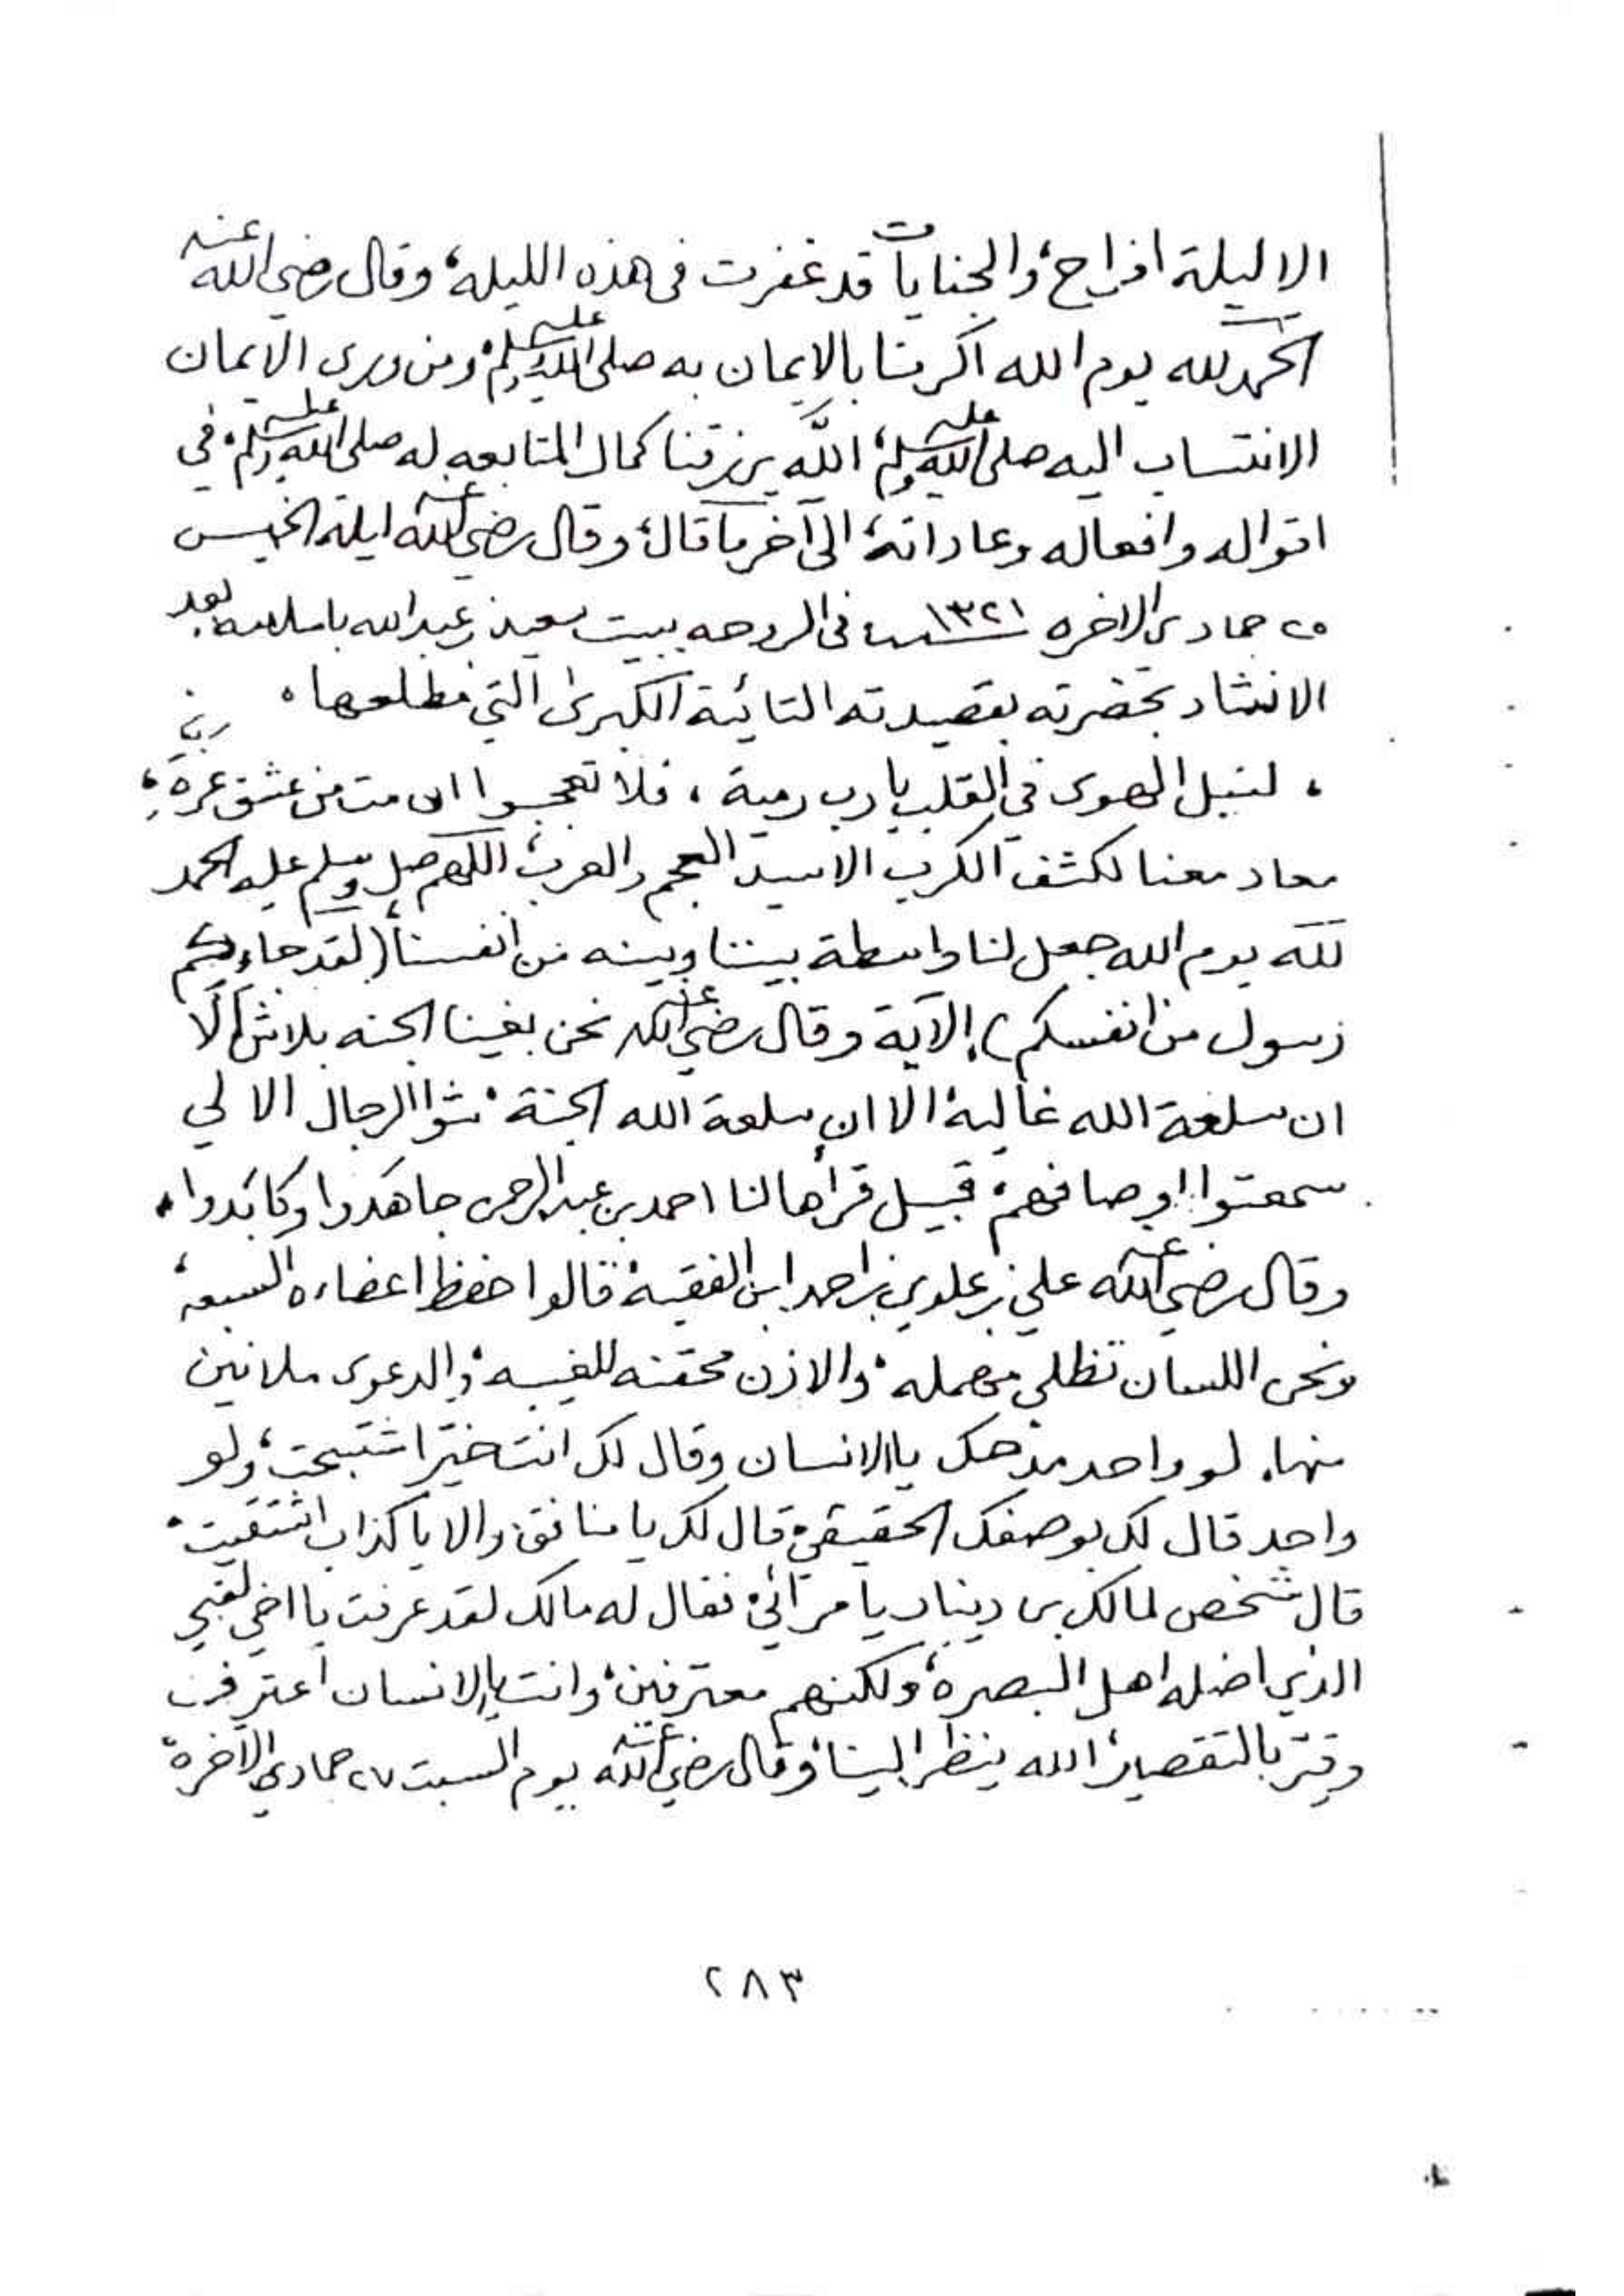 الا ليلة افراح، والجنايات قد غفرت في هذه الليله، وقال رضي الله عنه
الحمد لله يوم الله اكرمنا بالايمان به صلى الله عليه وسلم، ومن ورى الايمان
الانتساب اليه صلى الله عليه وسلم، الله يرزقنا كمال المتابعه له صلى الله عليه وسلم، في
اقواله وافعاله وعاداته، الى آخر ما قال، وقال رضي الله عنه ليلة الخميس
٢٥ جمادى الاخره سنة ١٣٢١ في الروحه ببيت سعيد بن عبدالله باسلامه بعد
الانشاد بحضرته بقصيدته التائية الكبرى التي مطلعها،
، لنبل الهوى في القلب يا رب رمية ، فلا تعجبوا ان مت من عشق عرة،
معاد معنا لكشف الكرب الا سيد العجم والعرب، اللهم صل وسلم عليه الحمد
لله يوم الله جعل لنا واسطة بيننا وبينه من انفسنا، (لقد جاءكم
رسول من انفسكم) الآية وقال رضي الله عنه نحن بغينا الجنه بلاش، ألا
ان سلعة الله غالية الا ان سلعة الله الجنة، شوا الرجال الا لي
سمعتوا اوصافهم، قبيل قراها لنا احمد بن عبدالرحمن جاهدوا وكابدوا،
وقال رضي الله عنه علي بن علوي بن احمد ابن الفقيه، قالوا حفظ اعضاءه السبعه،
ونحن اللسان تظلي مهمله، والاذن محقنه للغيبه، والدعوى ملانين
منها، لو واحد مدحك يا الانسان وقال لك انت خير اشتبحت، ولو
واحد قال لك بوصفك الحقيقي، قال لك يا منافق، والا يا كذاب اشتقيت،
قال شخص لمالك بن دينار يا مرائي، فقال له مالك لقد عرفت يا اخي لقبي
الذي اضله اهل البصرة، ولكنهم معترفين، وانت يا الانسان اعترف
وقر بالتقصير، الله ينظر الينا، وقال رضي الله عنه يوم السبت ٢٧ جمادى الآخرة
٢٨٣